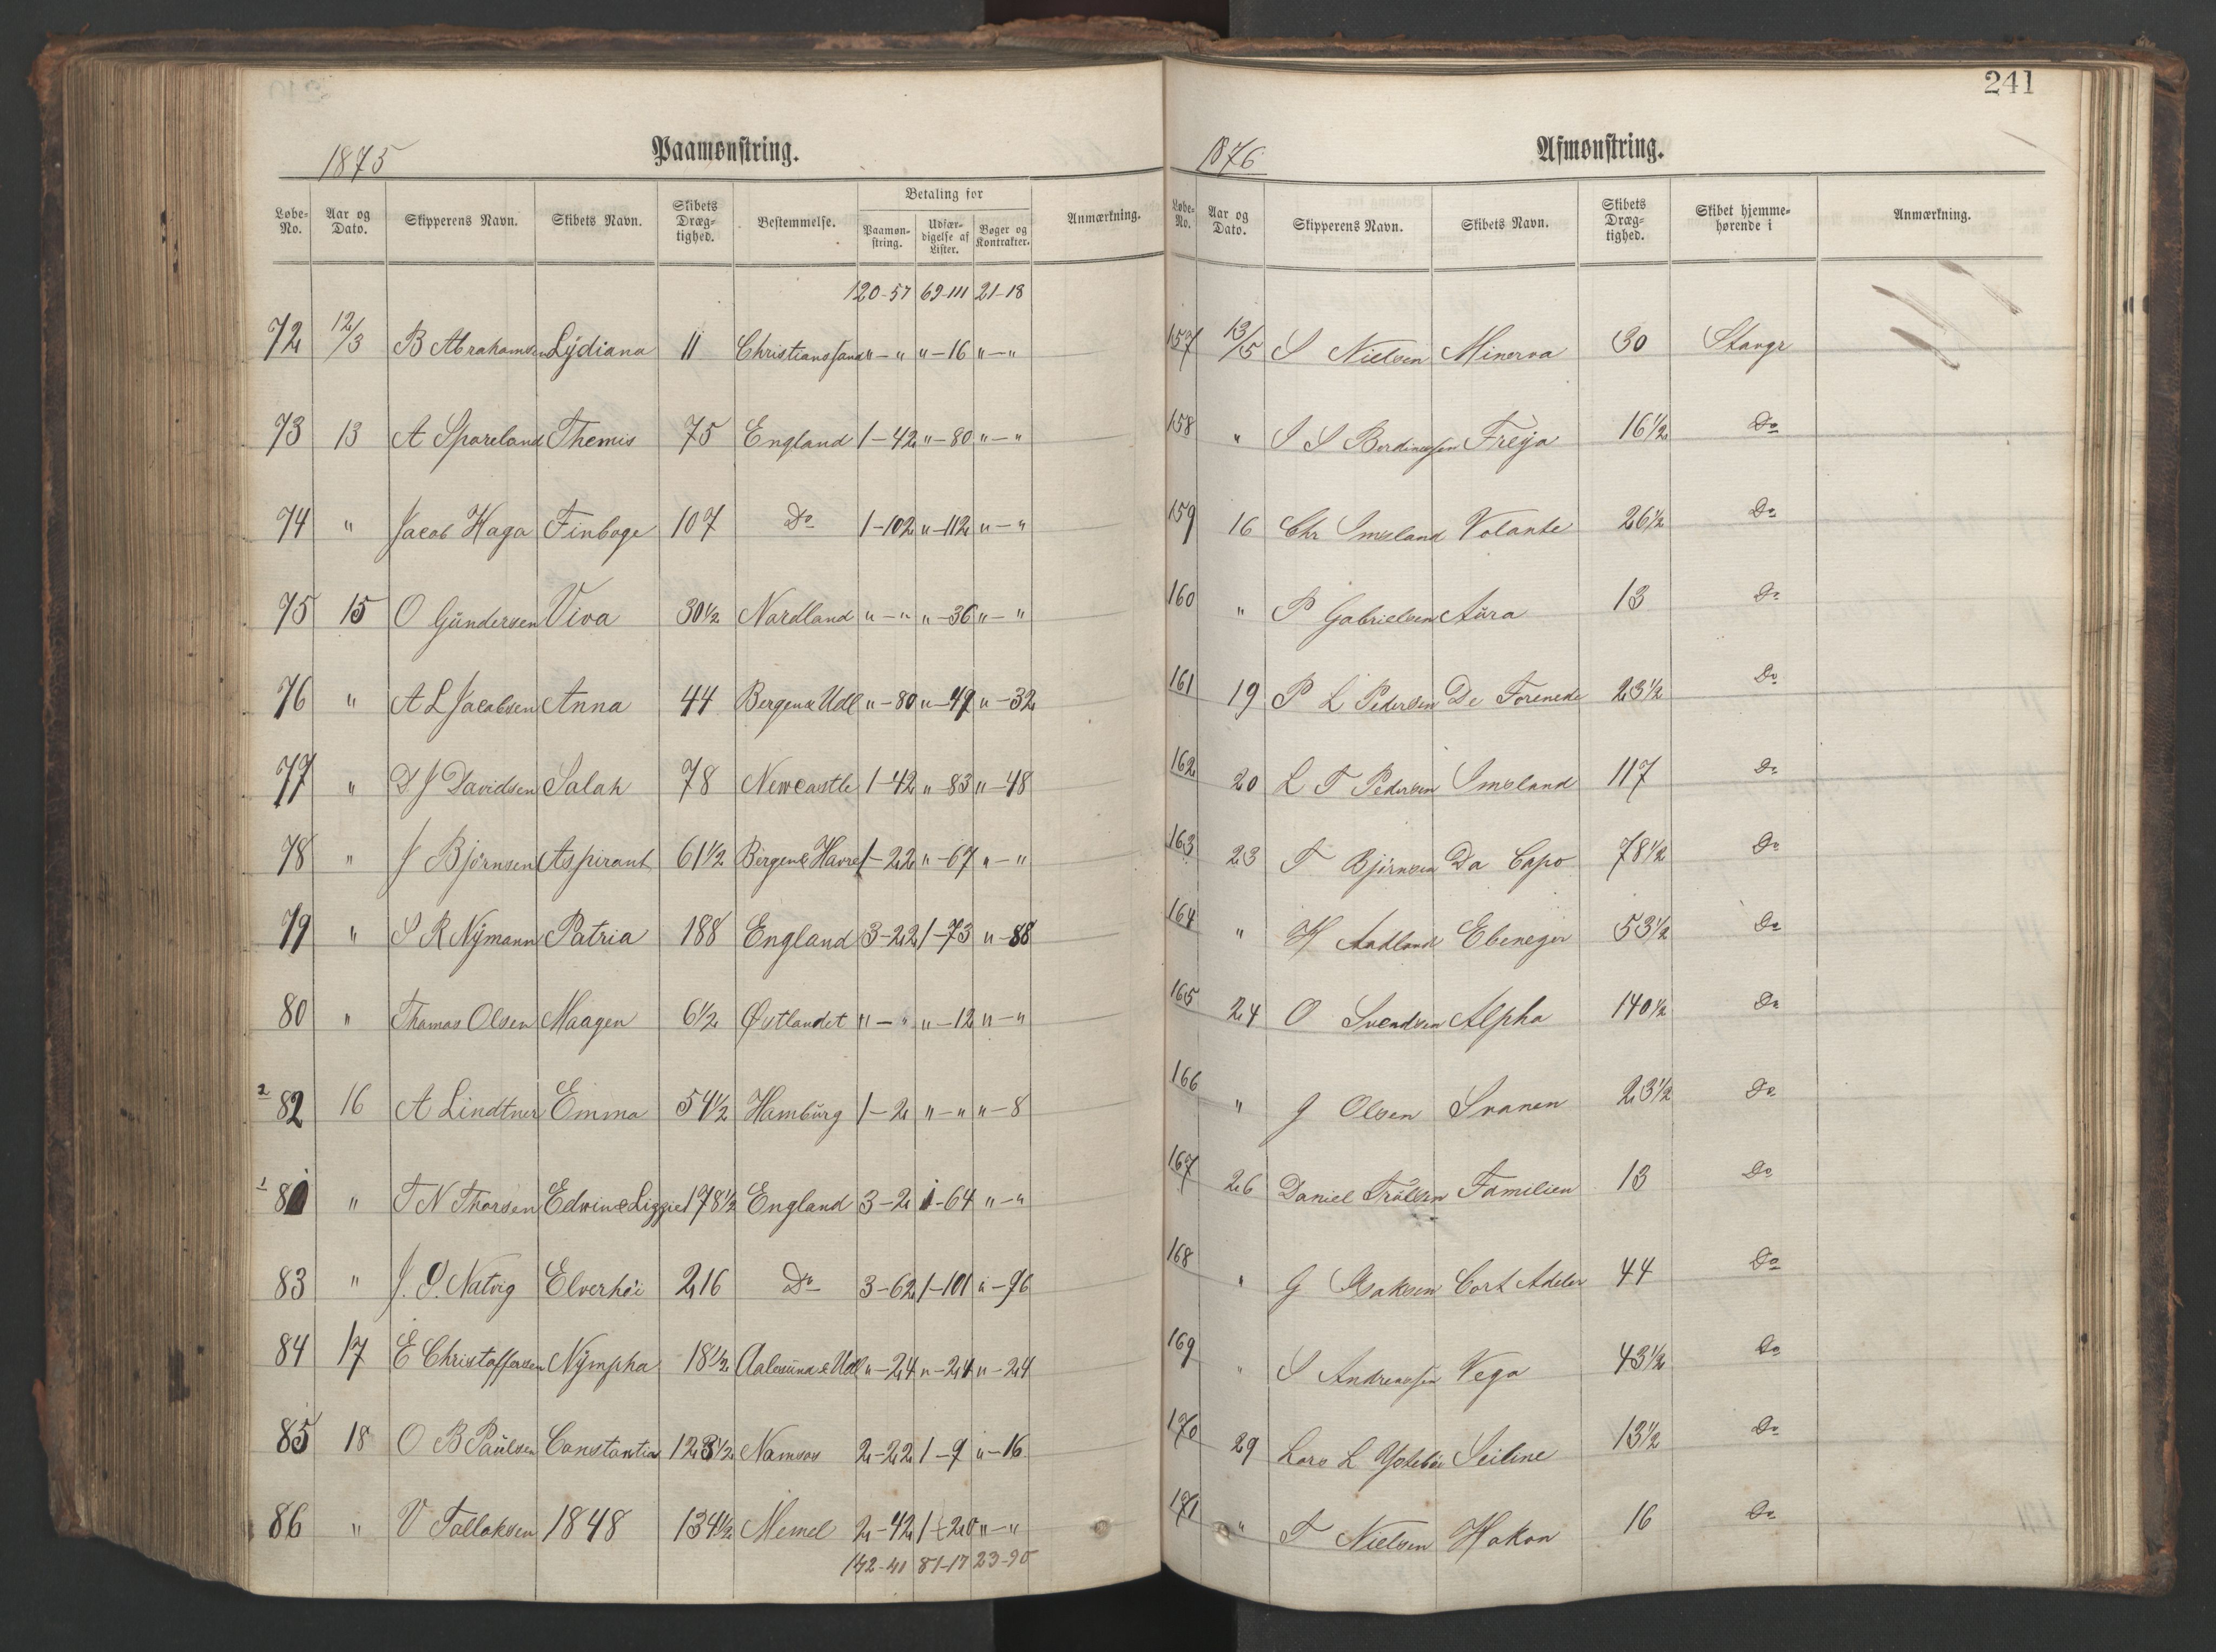 241
1875 Paamønstring.
Løbe-No. Aar og Dato. Skipperens Navn. Skibets Navn. Skibets Dræg-tighed. Bestemmelse. Betaling for Paamøn-string. Udfær-digelse af Lister. Bøger og Kontrakter. Anmærkning.
120-57 69-111 21-18
72 12/3 B Abrahamsen Lydiana 11 Christianssand "-" "-16 "-"
73 13 A Spareland Themis 75 England 1-42 "-80 "-"
74 " Jacob Haga Finboge 107 Do 1-102 "-112 "-"
75 15 O Gundersen Viva 30½ Nordland "-" "-36 "-"
76 " A L Jacobsen Anna 44 Bergen & Udl "-80 "-47 "-32
77 " D J Davidsen Salah 78 Newcastle 1-42 "-83 "-48
78 " J Bjørnsen Aspirant 61½ Bergen & Havre 1-22 "-67 "-"
79 " S R Nymann Patria 188 England 3-22 1-73 "-88
80 " Thomas Olsen Maagen 6½ Østlandet "-" "-12 "-"
2 82 16 A Lindtner Emma 54½ Hamburg 1-2 "-" "-8
1 81 " T N Thorsen Edwin & Lizzie 178½ England 3-2 1-64 "-"
83 " J. O. Natvig Elverhøi 216 Do 3-62 1-101 "-96
84 17 E Christoffersen Nympha 18½ Aalesund & Udl "-24 "-24 "-24
85 18 O B Paulsen Constantia 123½ Namsos 2-22 1-9 "-16
86 " V Tallaksen 1848 134½ Memel 2-42 1-20 "-"
142-41 81-17 23-90
1876 Afmønstring.
Løbe-No. Aar og Dato. Skipperens Navn. Skibets Navn. Skibets Dræg-tighed. Skibet hjemme-hørende i Anmærkning.
157 13/5 S Nielsen Minerva 30 Stavgr
158 " S S Berdinessen Freja 16½ Do
159 16 Chr Imsland Volante 26½ Do
160 " P Gabrielsen Aura 13 Do
161 19 P L Pedersen De Forenede 23½ Do
162 20 L T Pedersen Imsland 117 Do
163 23 T Bjørnsen Da Capo 78½ Do
164 " H Aadland Ebeneger 53½ Do
165 24 O Svendsen Alpha 140½ Do
166 " J Olsen Svanen 23½ Do
167 26 Daniel Trølsen Familien 13 Do
168 " G Isaksen Cort Adeler 44 Do
169 " S Andreassen Vega 43½ Do
170 29 Lars L Ystebøe Seiline 13½ Do
171 " T Nielsen Hakon 16 Do